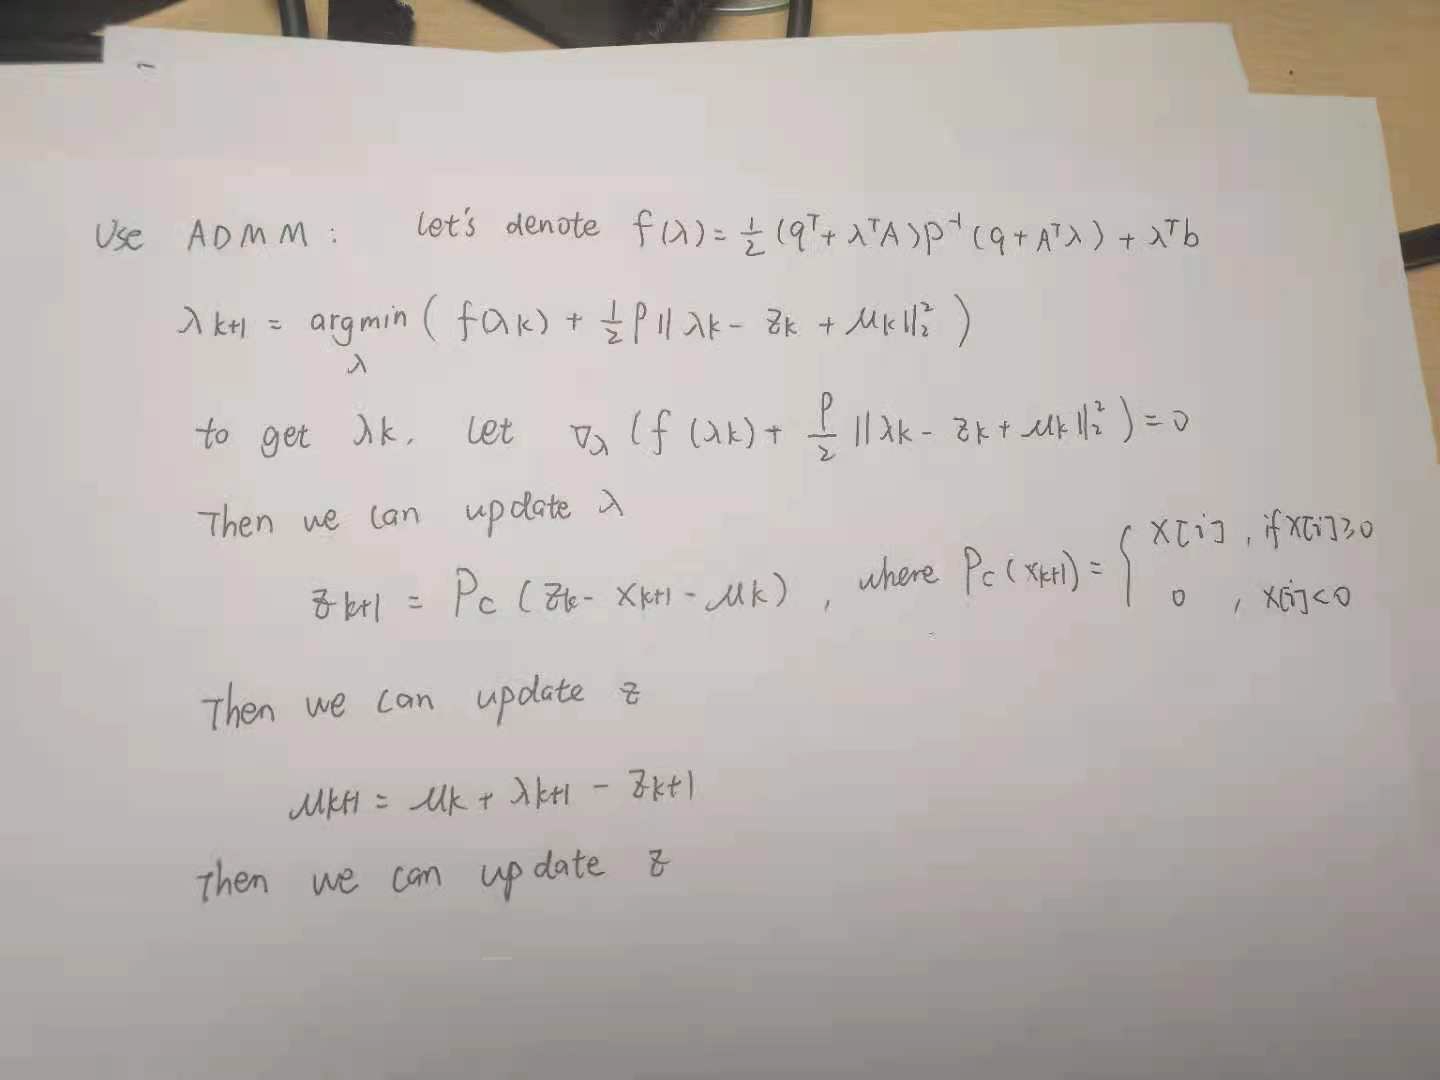 Use ADMM: Let's denote f(λ) = 1/2 (qᵀ + λᵀA) P⁻¹ (q + Aᵀλ) + λᵀb
λk+1 = argmin_λ ( f(λk) + 1/2 ρ || λk - zk + μk ||₂² )
to get λk. Let ∇λ ( f(λk) + ρ/2 || λk - zk + μk ||₂² ) = 0
Then we can update λ
zk+1 = Pc ( zk - xk+1 - μk ) , where Pc(xk+1) = { x[i] , if x[i] ≥ 0
0 , x[i] < 0
Then we can update z
μk+1 = μk + λk+1 - zk+1
Then we can update z